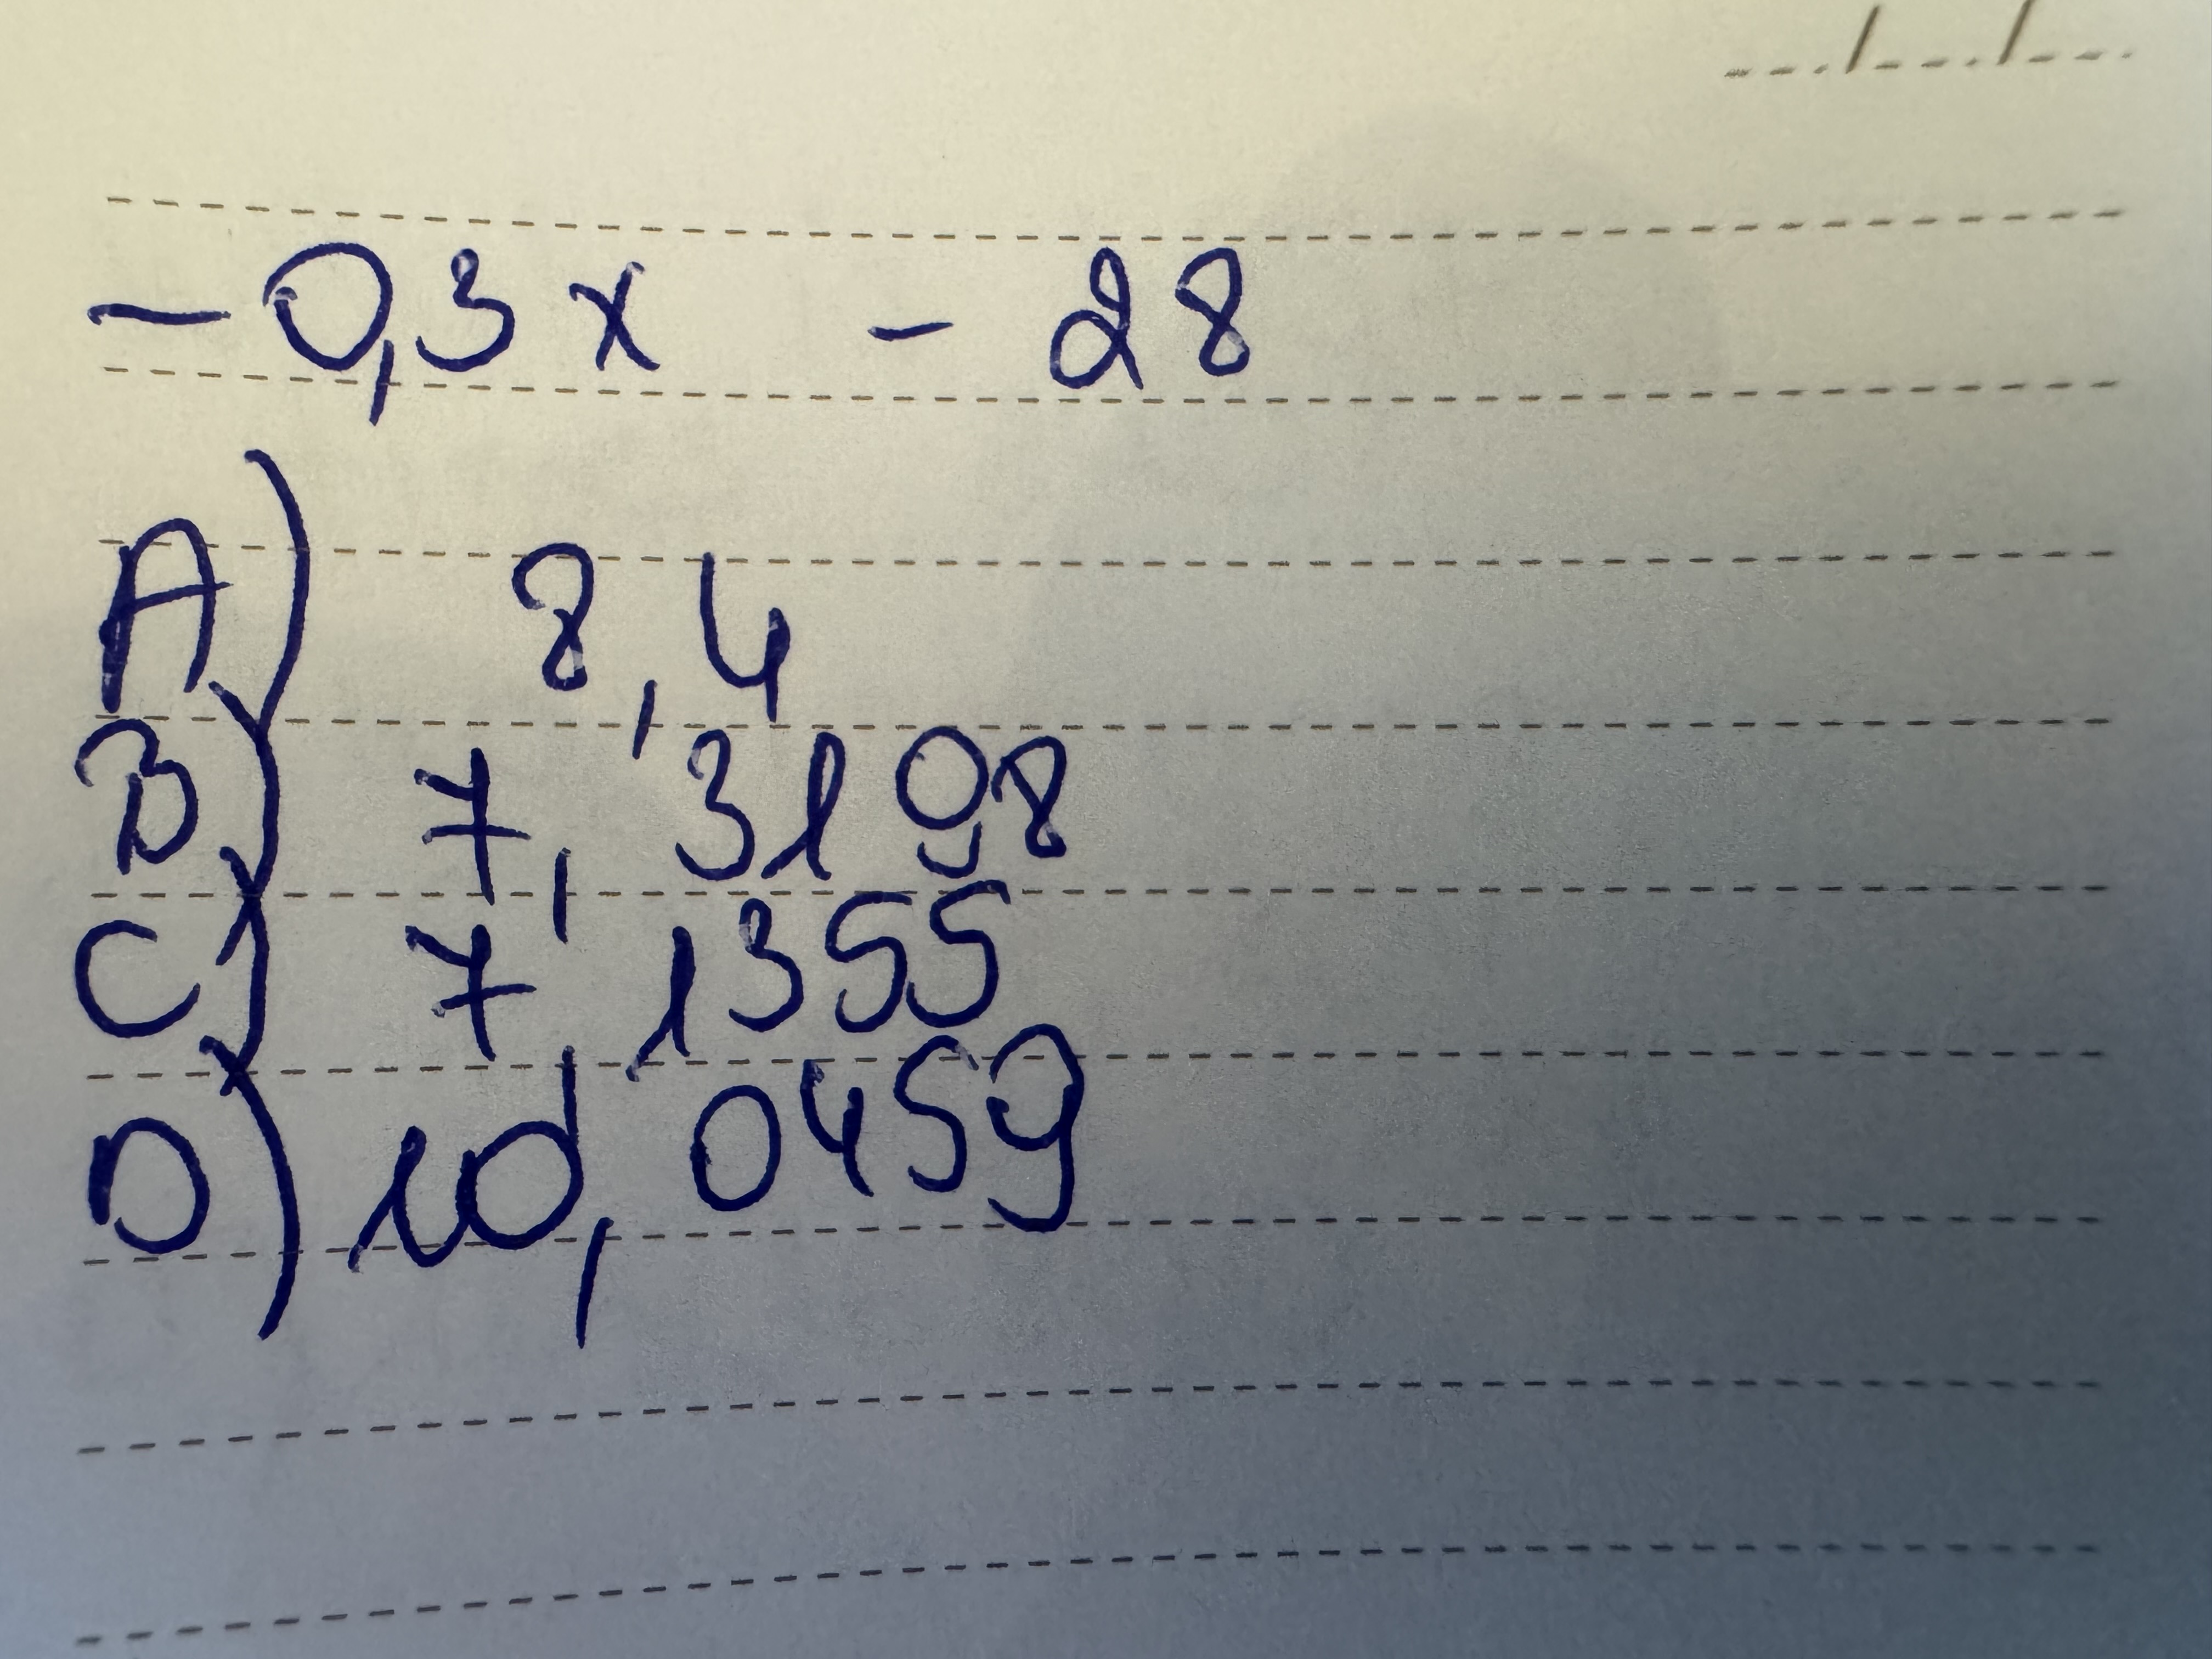 -0,3 x - 28
A) 8,4
B) 7,3108
C) 7,1355
D) 10,0459